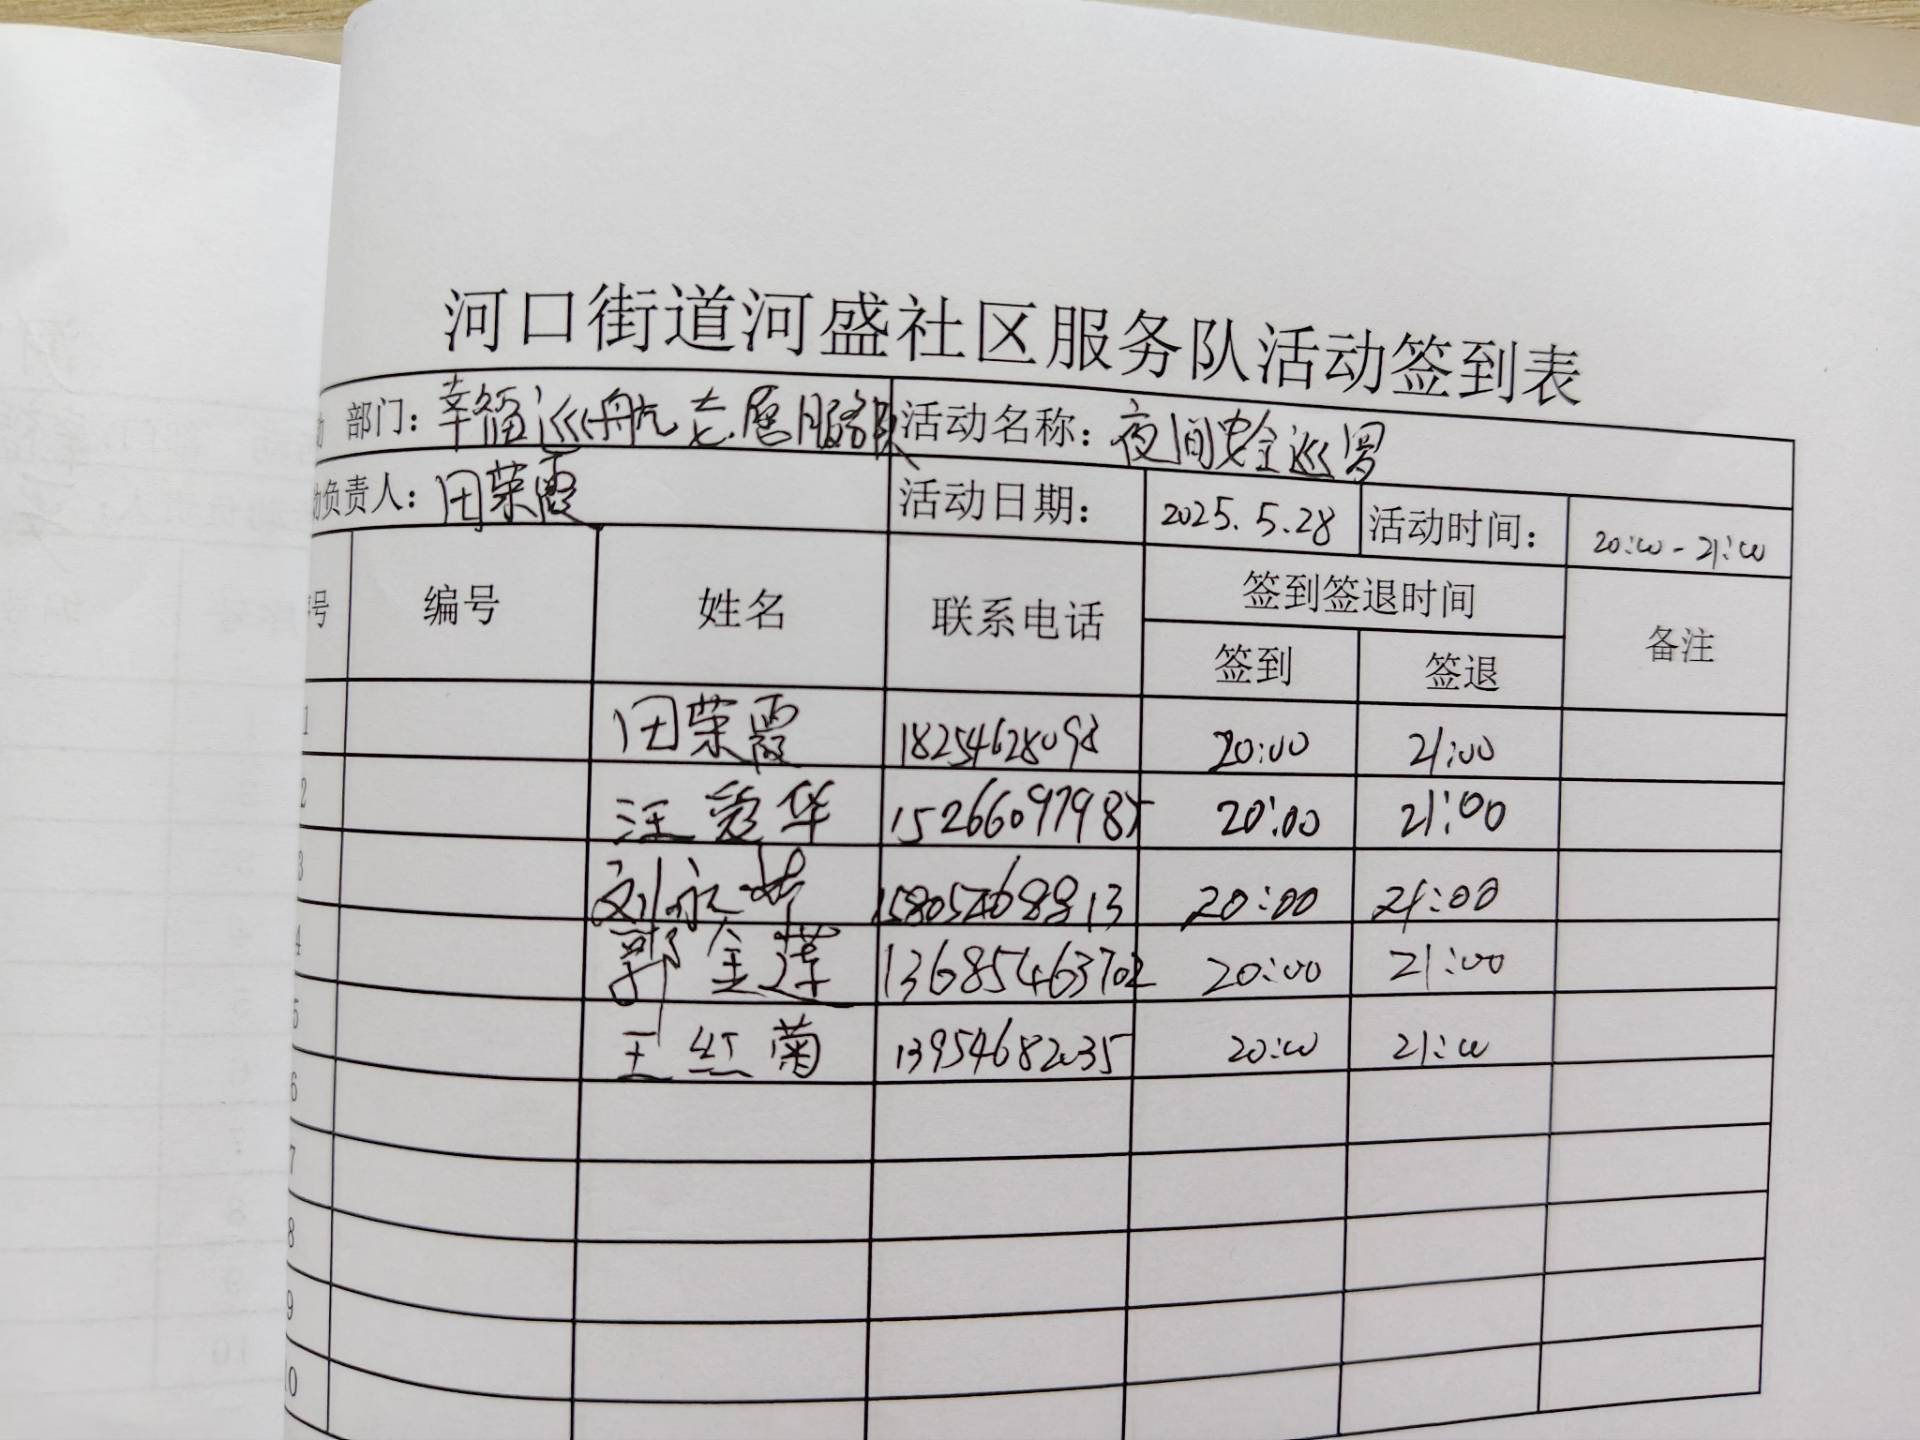 河口街道河盛社区服务队活动签到表
动 部门：幸福巡航志愿服务队 活动名称：夜间安全巡罗
动负责人：田荣霞 活动日期： 2025.5.28 活动时间： 20:00-21:00
序号 编号 姓名 联系电话 签到签退时间 备注
签到 签退
1 田荣霞 18254628098 20:00 21:00
2 汪爱华 15266097985 20:00 21:00
3 刘永 15805468913 20:00 21:00
4 郭金莲 13685463702 20:00 21:00
5 王红菊 13954682035 20:00 21:00
6
7
8
9
10